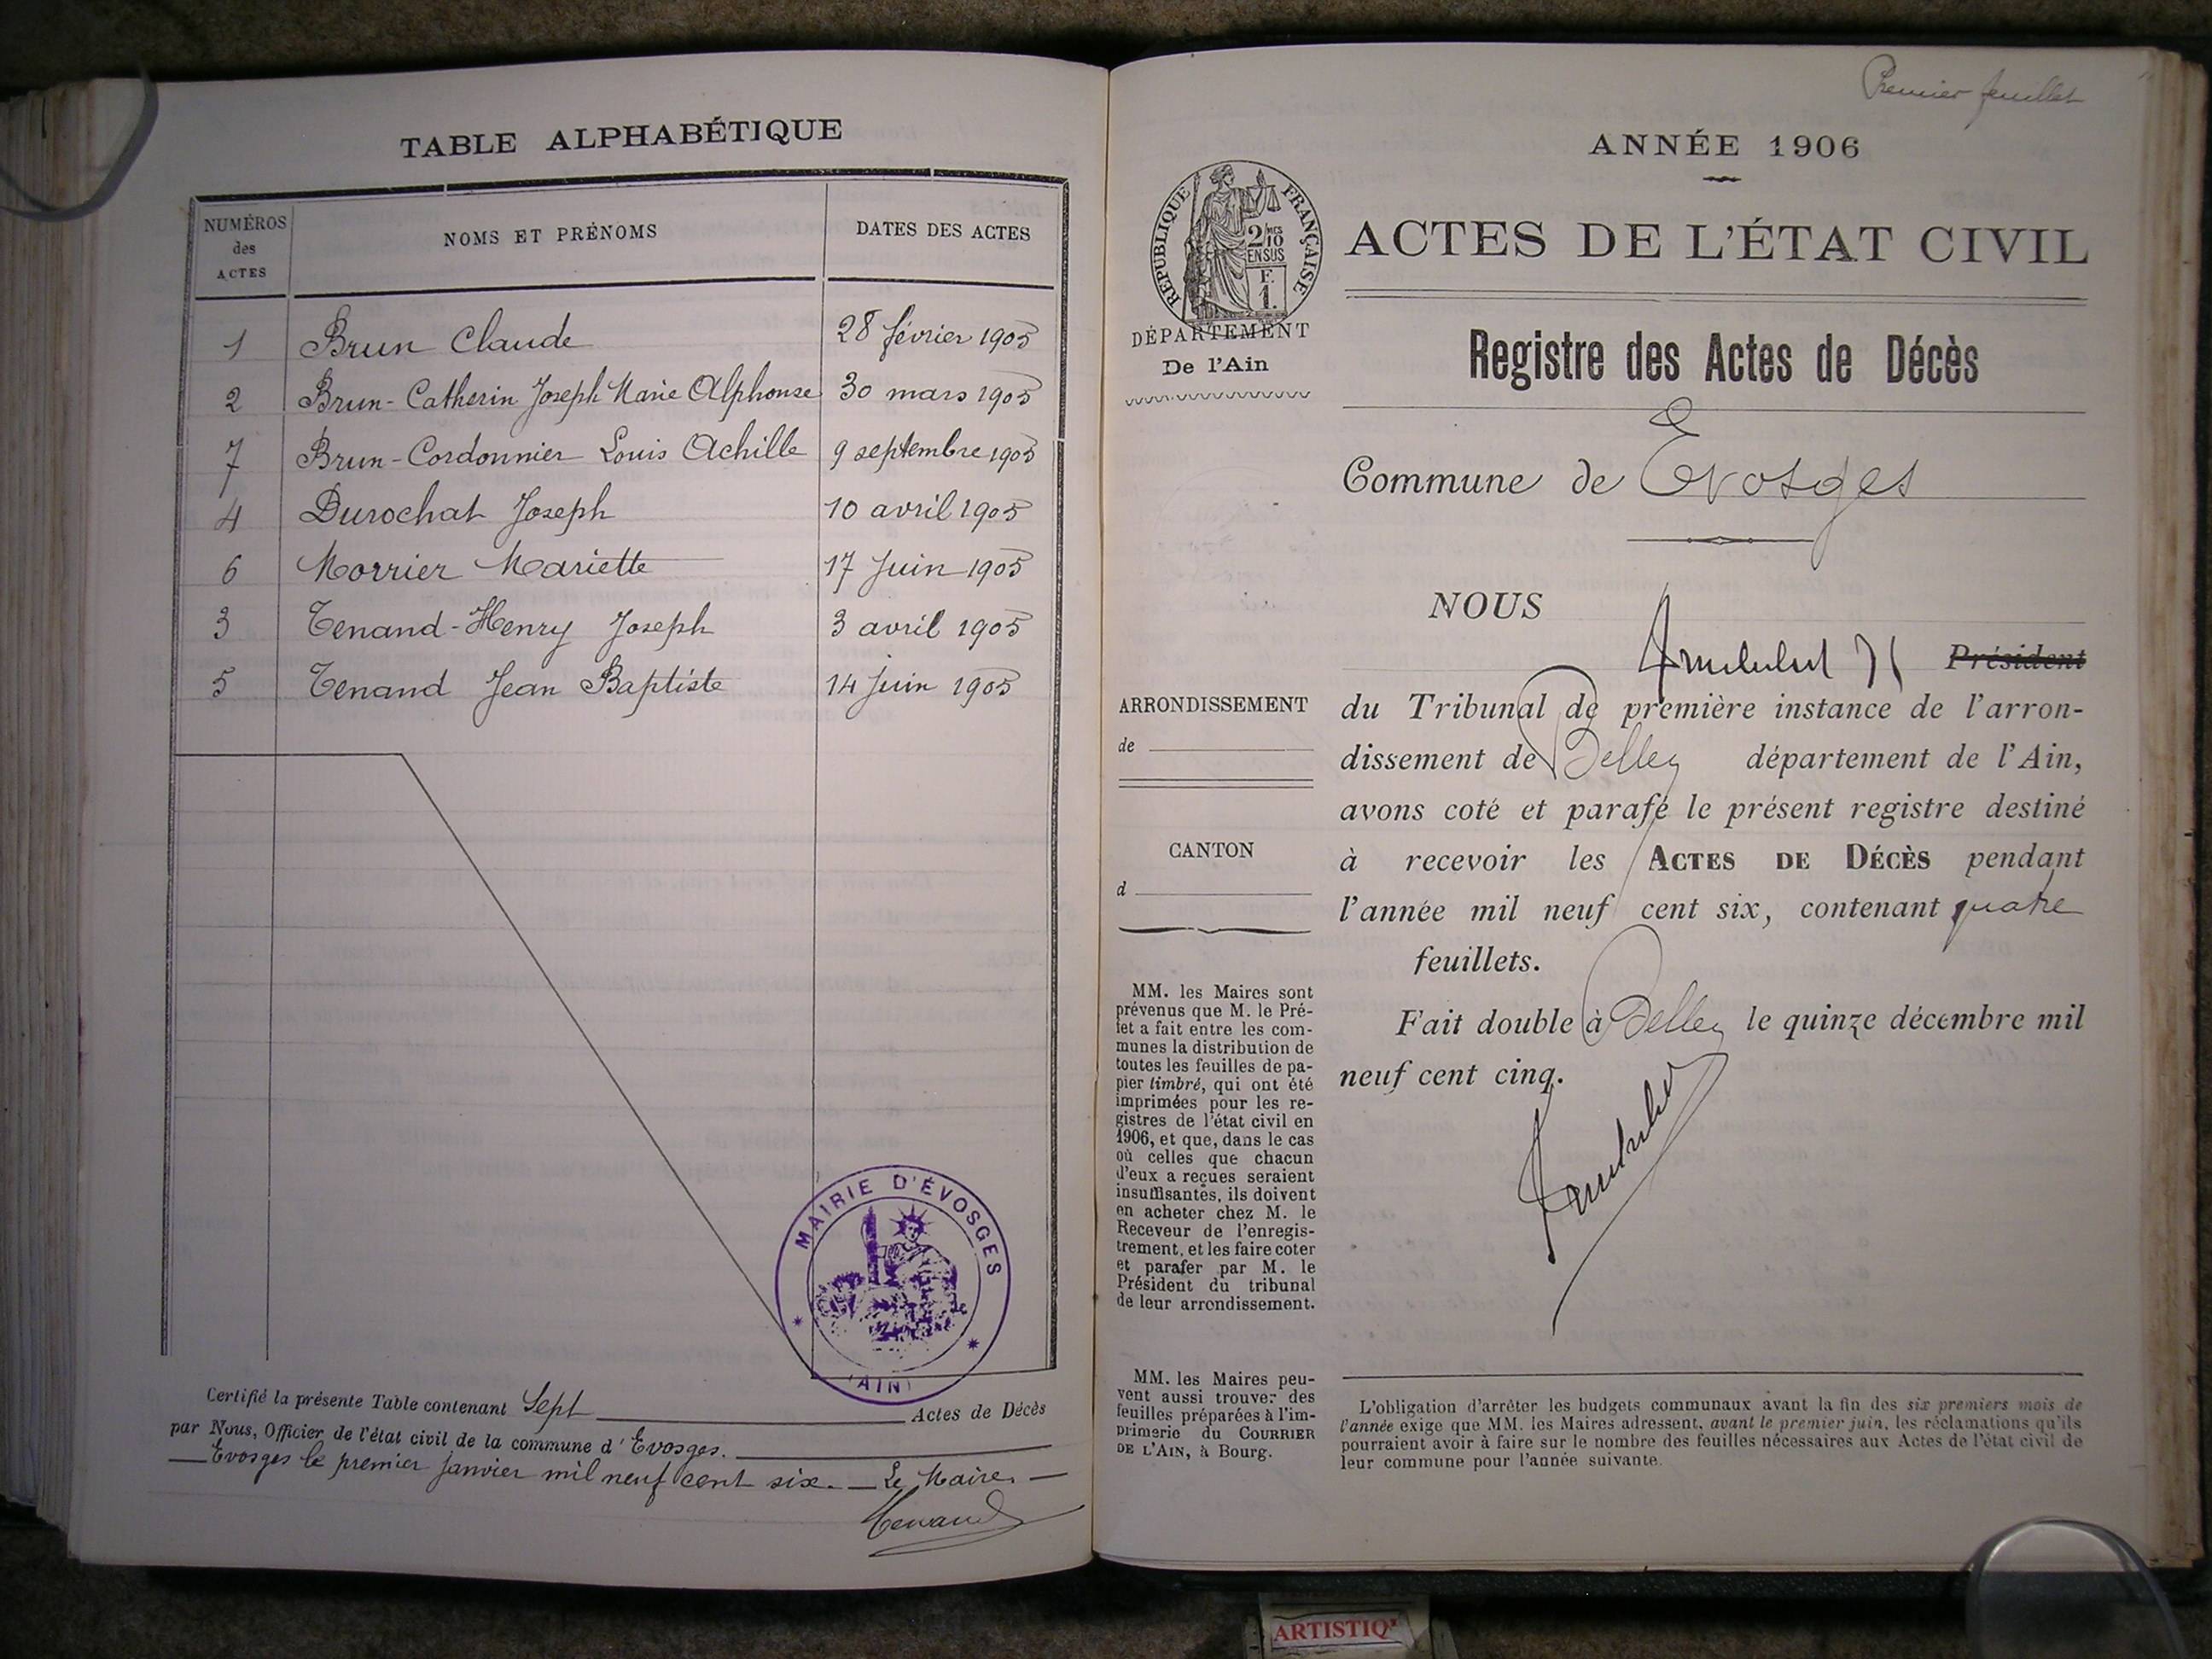 TABLE ALPHABÉTIQUE
NUMÉROS des ACTES NOMS ET PRÉNOMS DATES DES ACTES
1 Brun Claude 28 février 1905
2 Brun-Catherin Joseph Marie Alphonse 30 mars 1905
7 Brun-Cordonnier Louis Achille 9 septembre 1905
4 Durochat Joseph 10 avril 1905
6 Morrier Mariette 17 Juin 1905
3 Tenand-Henry Joseph 3 avril 1905
5 Tenand Jean Baptiste 14 Juin 1905
MAIRIE D'ÉVOSGES
(AIN)
Certifié la présente Table contenant Sept Actes de Décès
par Nous, Officier de l'état civil de la commune d'Evosges.
Evosges le premier Janvier mil neuf cent six. Le Maire
Tenand
Premier feuillet
ANNÉE 1906
RÉPUBLIQUE FRANÇAISE
2/10 EN SUS
F. 1.
ACTES DE L'ÉTAT CIVIL
DÉPARTEMENT
De l'Ain
Registre des Actes de Décès
Commune de Evosges
NOUS
Président
du Tribunal de première instance de l'arron-
dissement de Belley département de l'Ain,
avons coté et parafé le présent registre destiné
à recevoir les ACTES DE DÉCÈS pendant
l'année mil neuf cent six, contenant quatre
feuillets.
Fait double à Belley le quinze décembre mil
neuf cent cinq.
ARRONDISSEMENT
de
CANTON
d
MM. les Maires sont
prévenus que M. le Pré-
fet a fait entre les com-
munes la distribution de
toutes les feuilles de pa-
pier timbré, qui ont été
imprimées pour les re-
gistres de l'état civil en
1906, et que, dans le cas
où celles que chacun
d'eux a reçues seraient
insuffisantes, ils doivent
en acheter chez M. le
Receveur de l'enregis-
trement, et les faire coter
et parafer par M. le
Président du tribunal
de leur arrondissement.
MM. les Maires peu-
vent aussi trouver des
feuilles préparées à l'im-
primerie du COURRIER
DE L'AIN, à Bourg.
L'obligation d'arrêter les budgets communaux avant la fin des six premiers mois de
l'année exige que MM. les Maires adressent, avant le premier juin, les réclamations qu'ils
pourraient avoir à faire sur le nombre des feuilles nécessaires aux Actes de l'état civil de
leur commune pour l'année suivante.
ARTISTIQ